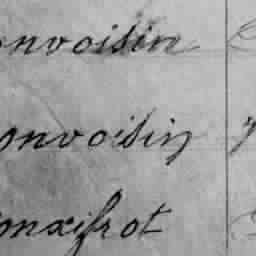 onvoisin
onvoisin
onxifrot